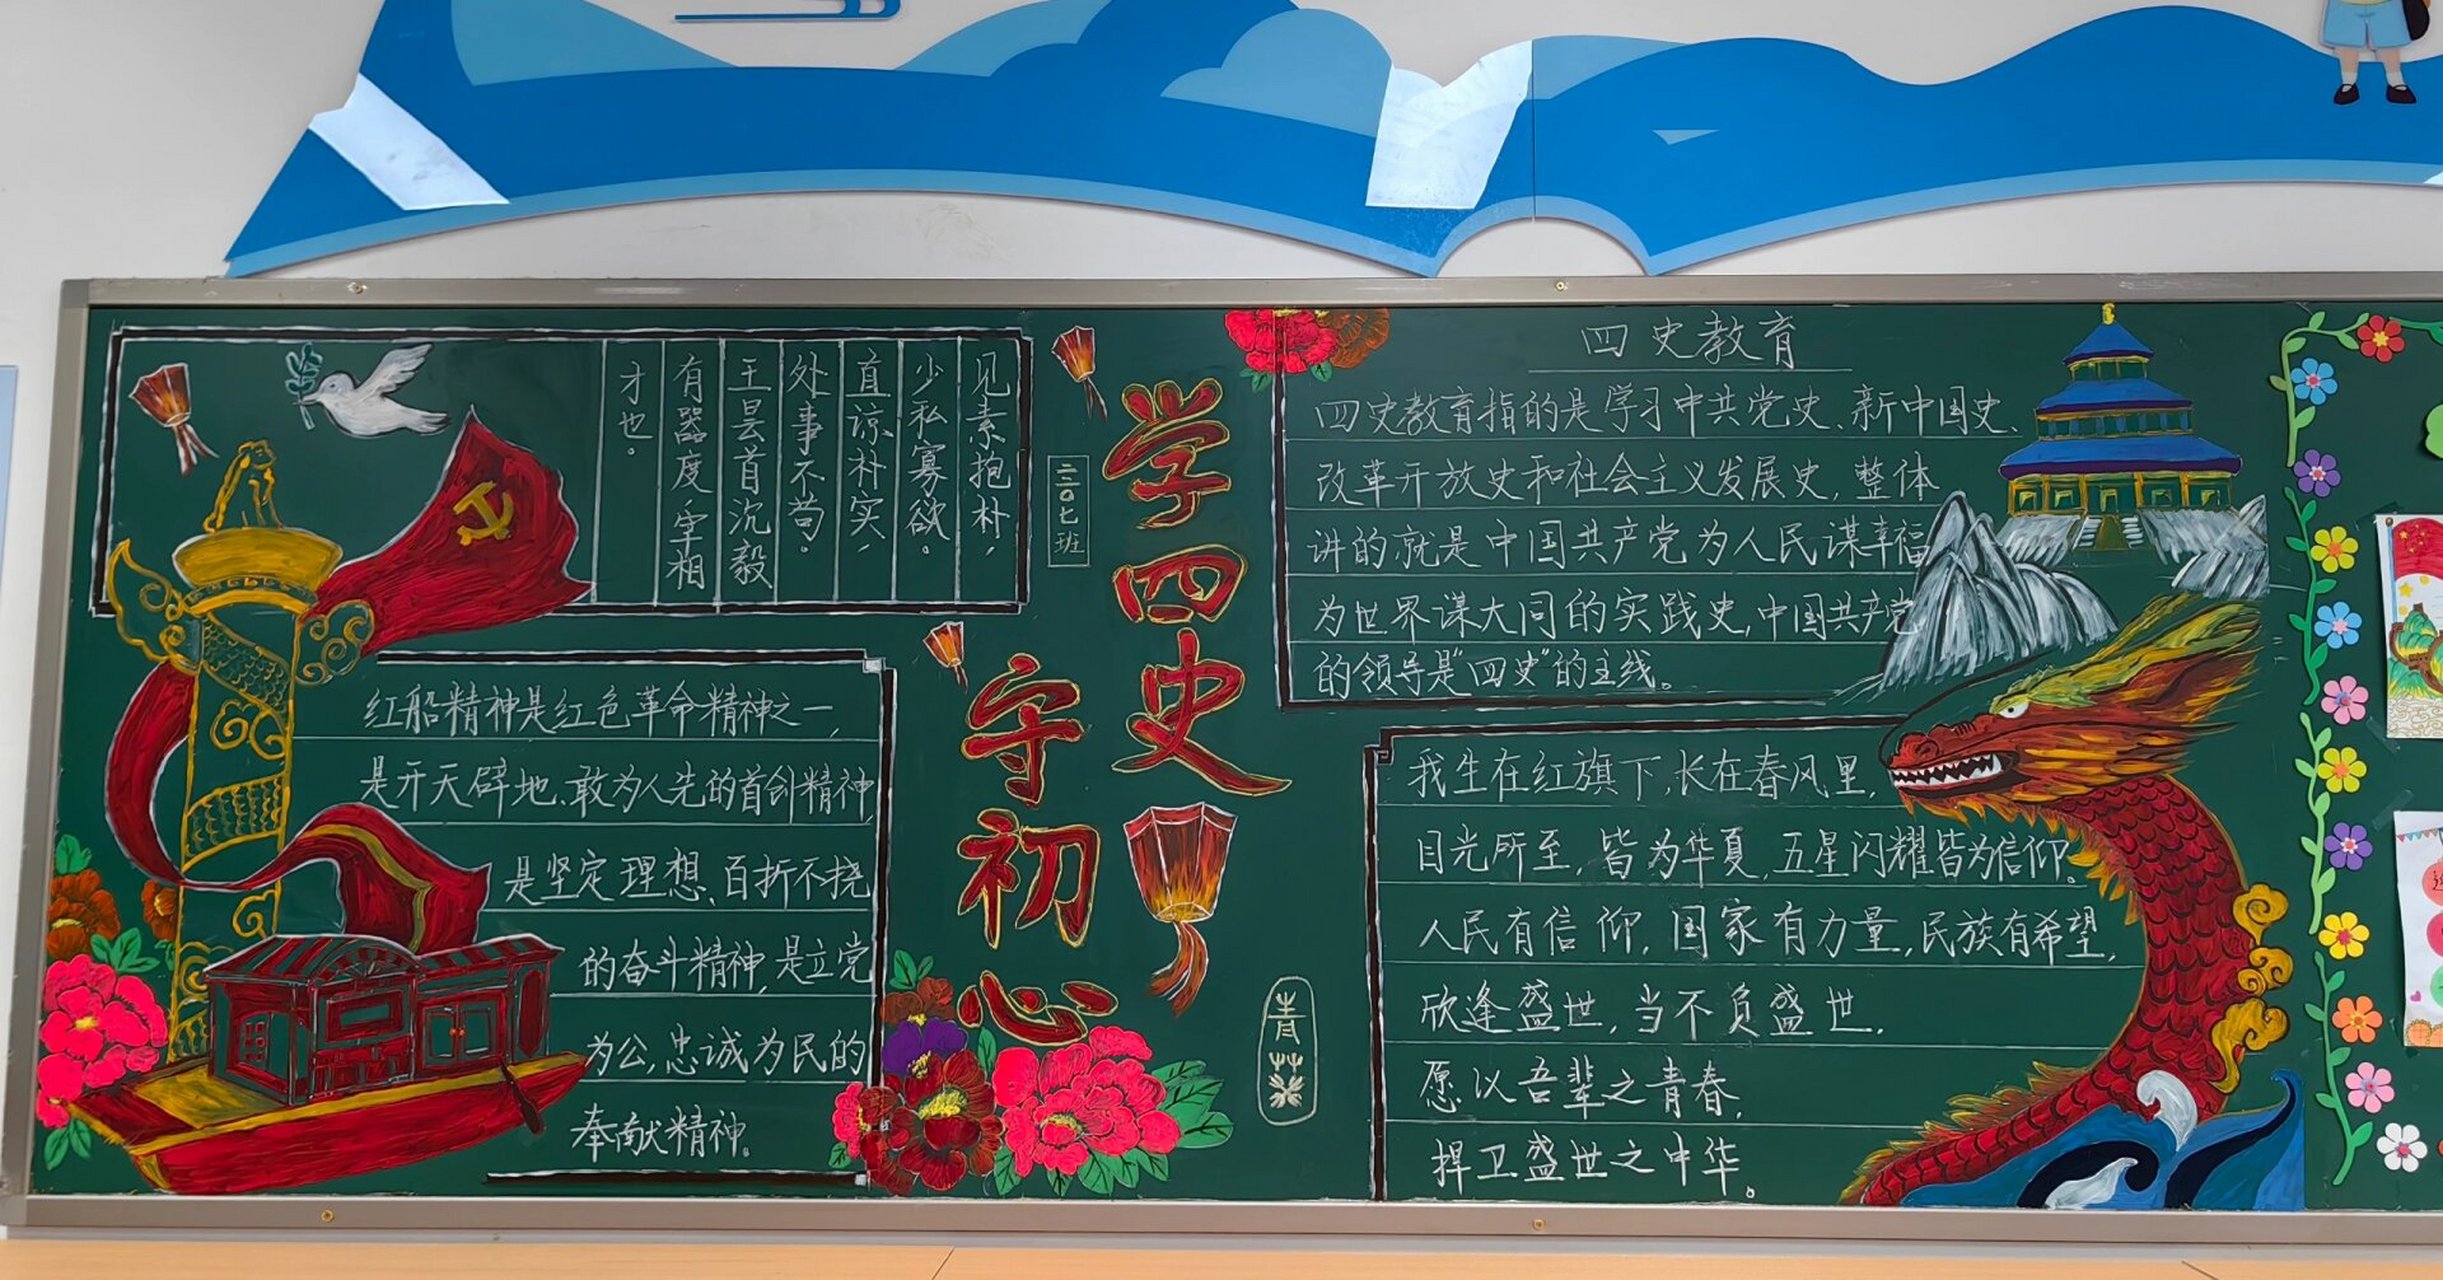 见素抱朴，
少私寡欲。
直谅朴实，
处事不苟。
王昙首沉毅
有器度，宰相
才也。
二二〇七班
学四史
守初心
红船精神是红色革命精神之一，
是开天辟地、敢为人先的首创精神，
是坚定理想、百折不挠
的奋斗精神，是立党
为公，忠诚为民的
奉献精神。
四史教育
四史教育指的是学习中共党史、新中国史、
改革开放史和社会主义发展史，整体
讲的就是中国共产党为人民谋幸福
为世界谋大同的实践史，中国共产党
的领导是“四史”的主线。
我生在红旗下，长在春风里，
目光所至，皆为华夏，五星闪耀皆为信仰。
人民有信仰，国家有力量，民族有希望，
欣逢盛世，当不负盛世，
愿以吾辈之青春，
捍卫盛世之中华。